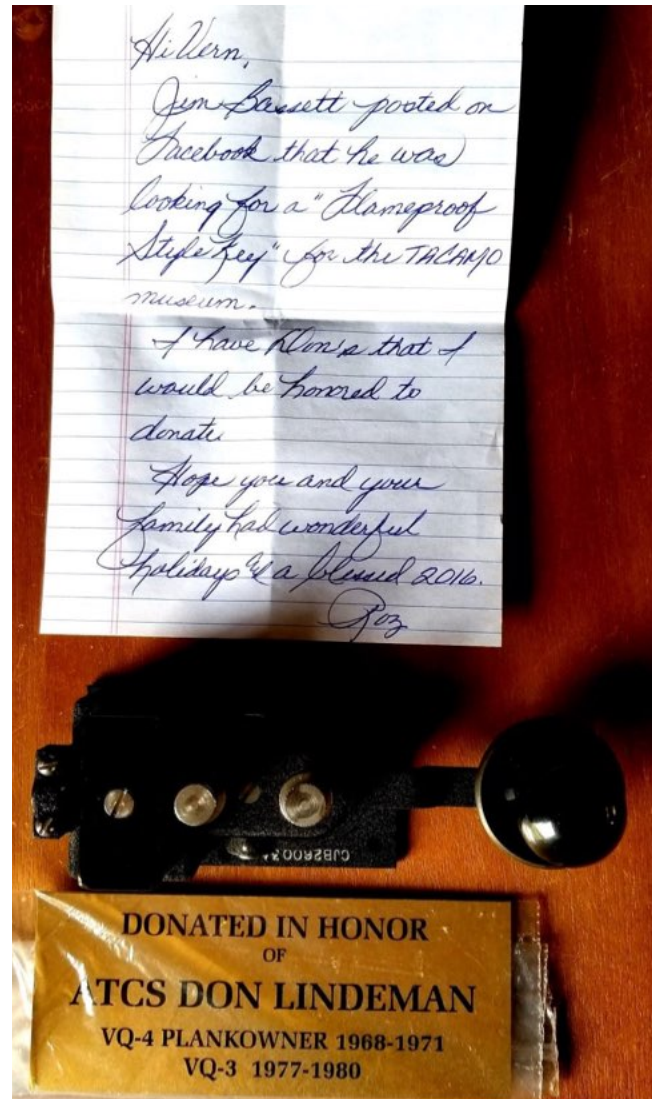 Hi Vern,
Jim Bassett posted on
Facebook that he was
looking for a "Flameproof
Style Key" for the TACAMO
museum.
I have Don's that I
would be honored to
donate
Hope you and your
family had wonderful
holidays & a blessed 2016.
Roz
CJB28003A
DONATED IN HONOR
OF
ATCS DON LINDEMAN
VQ-4 PLANKOWNER 1968-1971
VQ-3 1977-1980